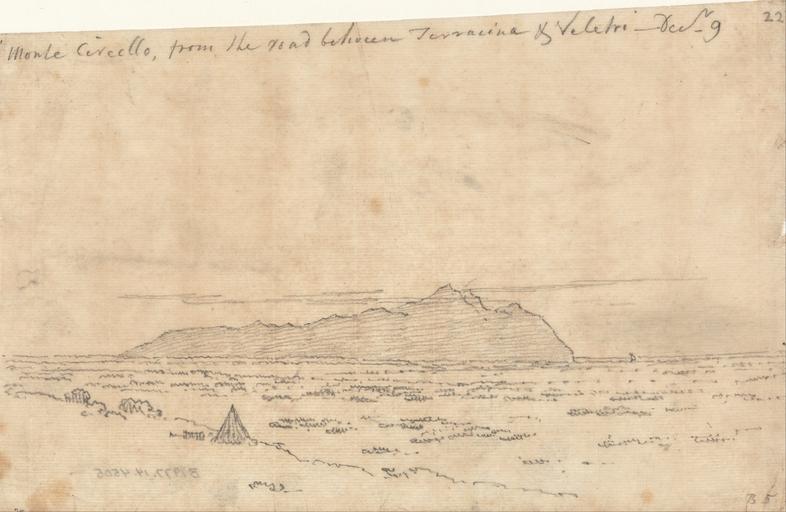 Monte Circello, from the road between Terracina & Veletri — Decr 9
22
B1977.14.4506
B 5